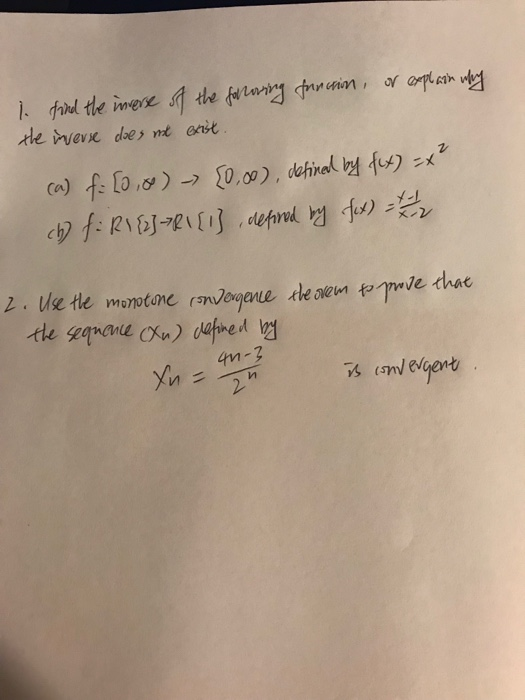 1. find the inverse of the following function, or explain why
the inverse does not exist.
(a) f: [0,∞) → [0,∞), defined by f(x) = x²
(b) f: R\{2}→R\{1}, defined by f(x) = x-1/x-2
2. Use the monotone convergence theorem to prove that
the sequence (Xn) defined by
Xn = 4n-3/2ⁿ is convergent.